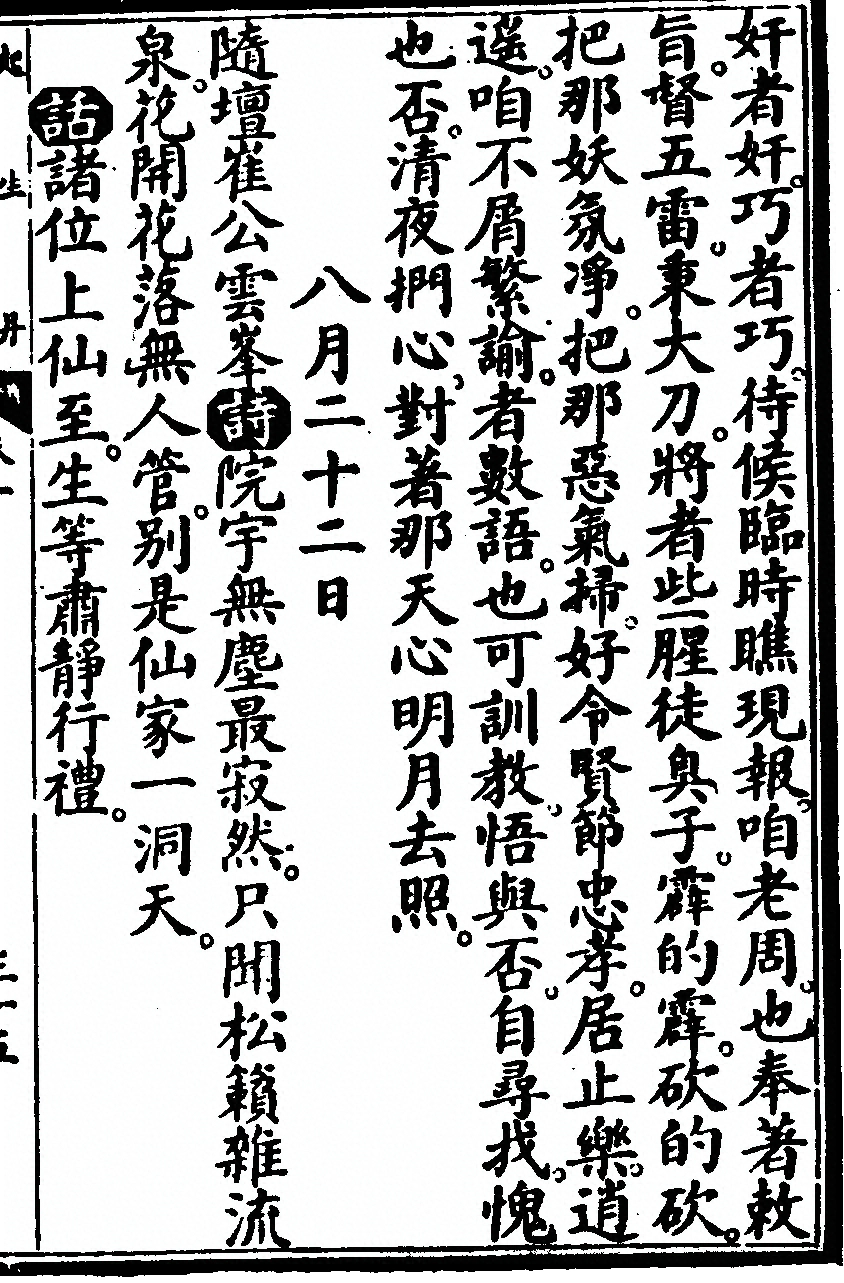 奸者奸。巧者巧。待候臨時瞧現報。咱老周。也奉著敕
旨。督五雷。秉大刀。將者些腥徒臭子。霹的霹。砍的砍。
把那妖氛凈。把那惡氣掃。好令賢節忠孝。居止樂。逍
遥。咱不屑繁諭。者數語。也可訓教。悟與否。自尋找。愧
也否。清夜捫心。對著那天心明月去照。
八月二十二日
隨壇崔公雲峯詩院宇無塵最寂然。只聞松籟雜流
泉。花開花落無人管。别是仙家一洞天。
話諸位上仙至。生等肅靜行禮。